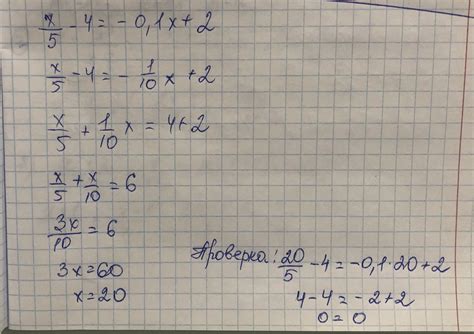 x/5 - 4 = - 0,1x + 2
x/5 - 4 = - 1/10 x + 2
x/5 + 1/10 x = 4 + 2
x/5 + x/10 = 6
3x/10 = 6
3x = 60
x = 20
Проверка: 20/5 - 4 = -0,1·20 + 2
4 - 4 = - 2 + 2
0 = 0